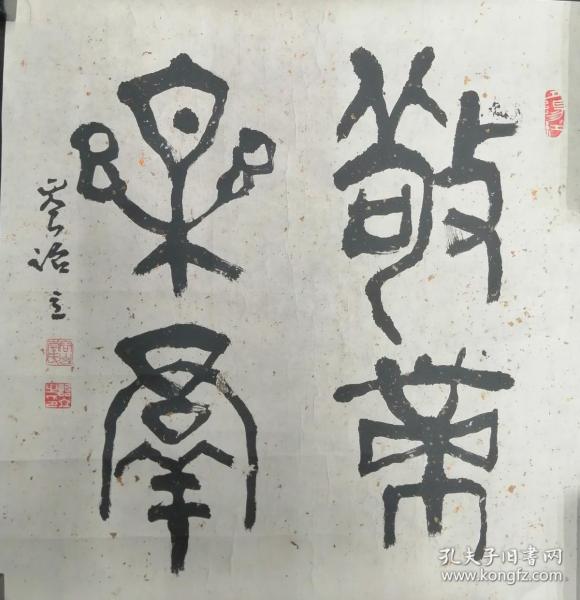 敬業
樂群
乔治立
孔夫子旧书网
www.kongfz.com